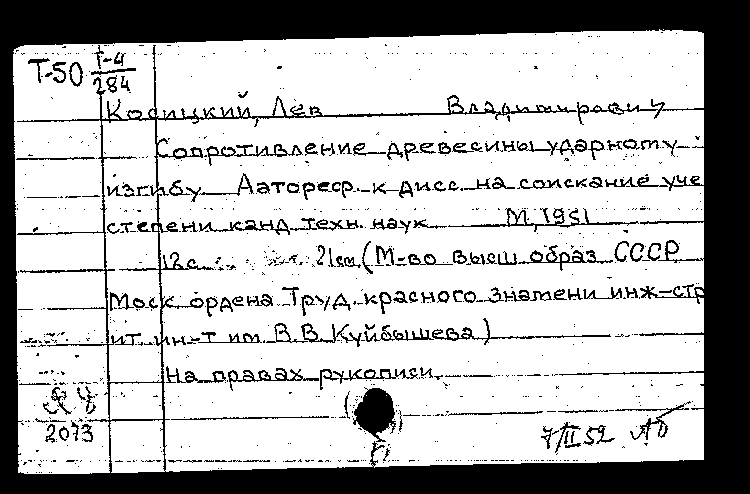 Т-50 Т-4/284
Косицкий, Лев Владимирович
Сопротивление древесины ударному
изгибу Автореф. к дисс. на соискание уче
степени канд. техн. наук М, 1951
12с. 21см (М-во высш образ СССР
Моск. ордена Труд. красного знамени инж-стр
ит. ин-т им. В.В. Куйбышева)
На правах рукописи.
2073
7/II 52